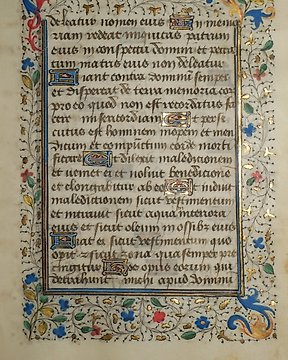 deleatur nomen eius In memo
riam redeat iniquitas patrum
eius in conspectu domini et pecca
tum matris eius non deleatur
Fiant contra dominum semper
et dispereat de terra memoria eorum
pro eo quod non est recordatus face
re misericordiam Et perse
cutus est hominem inopem et men
dicum et compunctum corde morti
ficare Et dilexit maledictionem
et veniet ei et noluit benedictione
et elongabitur ab eo Et induit
maledictionem sicut vestimentum
et intravit sicut aqua interiora
eius et sicut oleum in ossibus eius
Fiat ei sicut vestimentum quo
operitur et sicut zona qua semper pre
cingitur Hoc opus eorum qui
detrahunt michi apud dominum